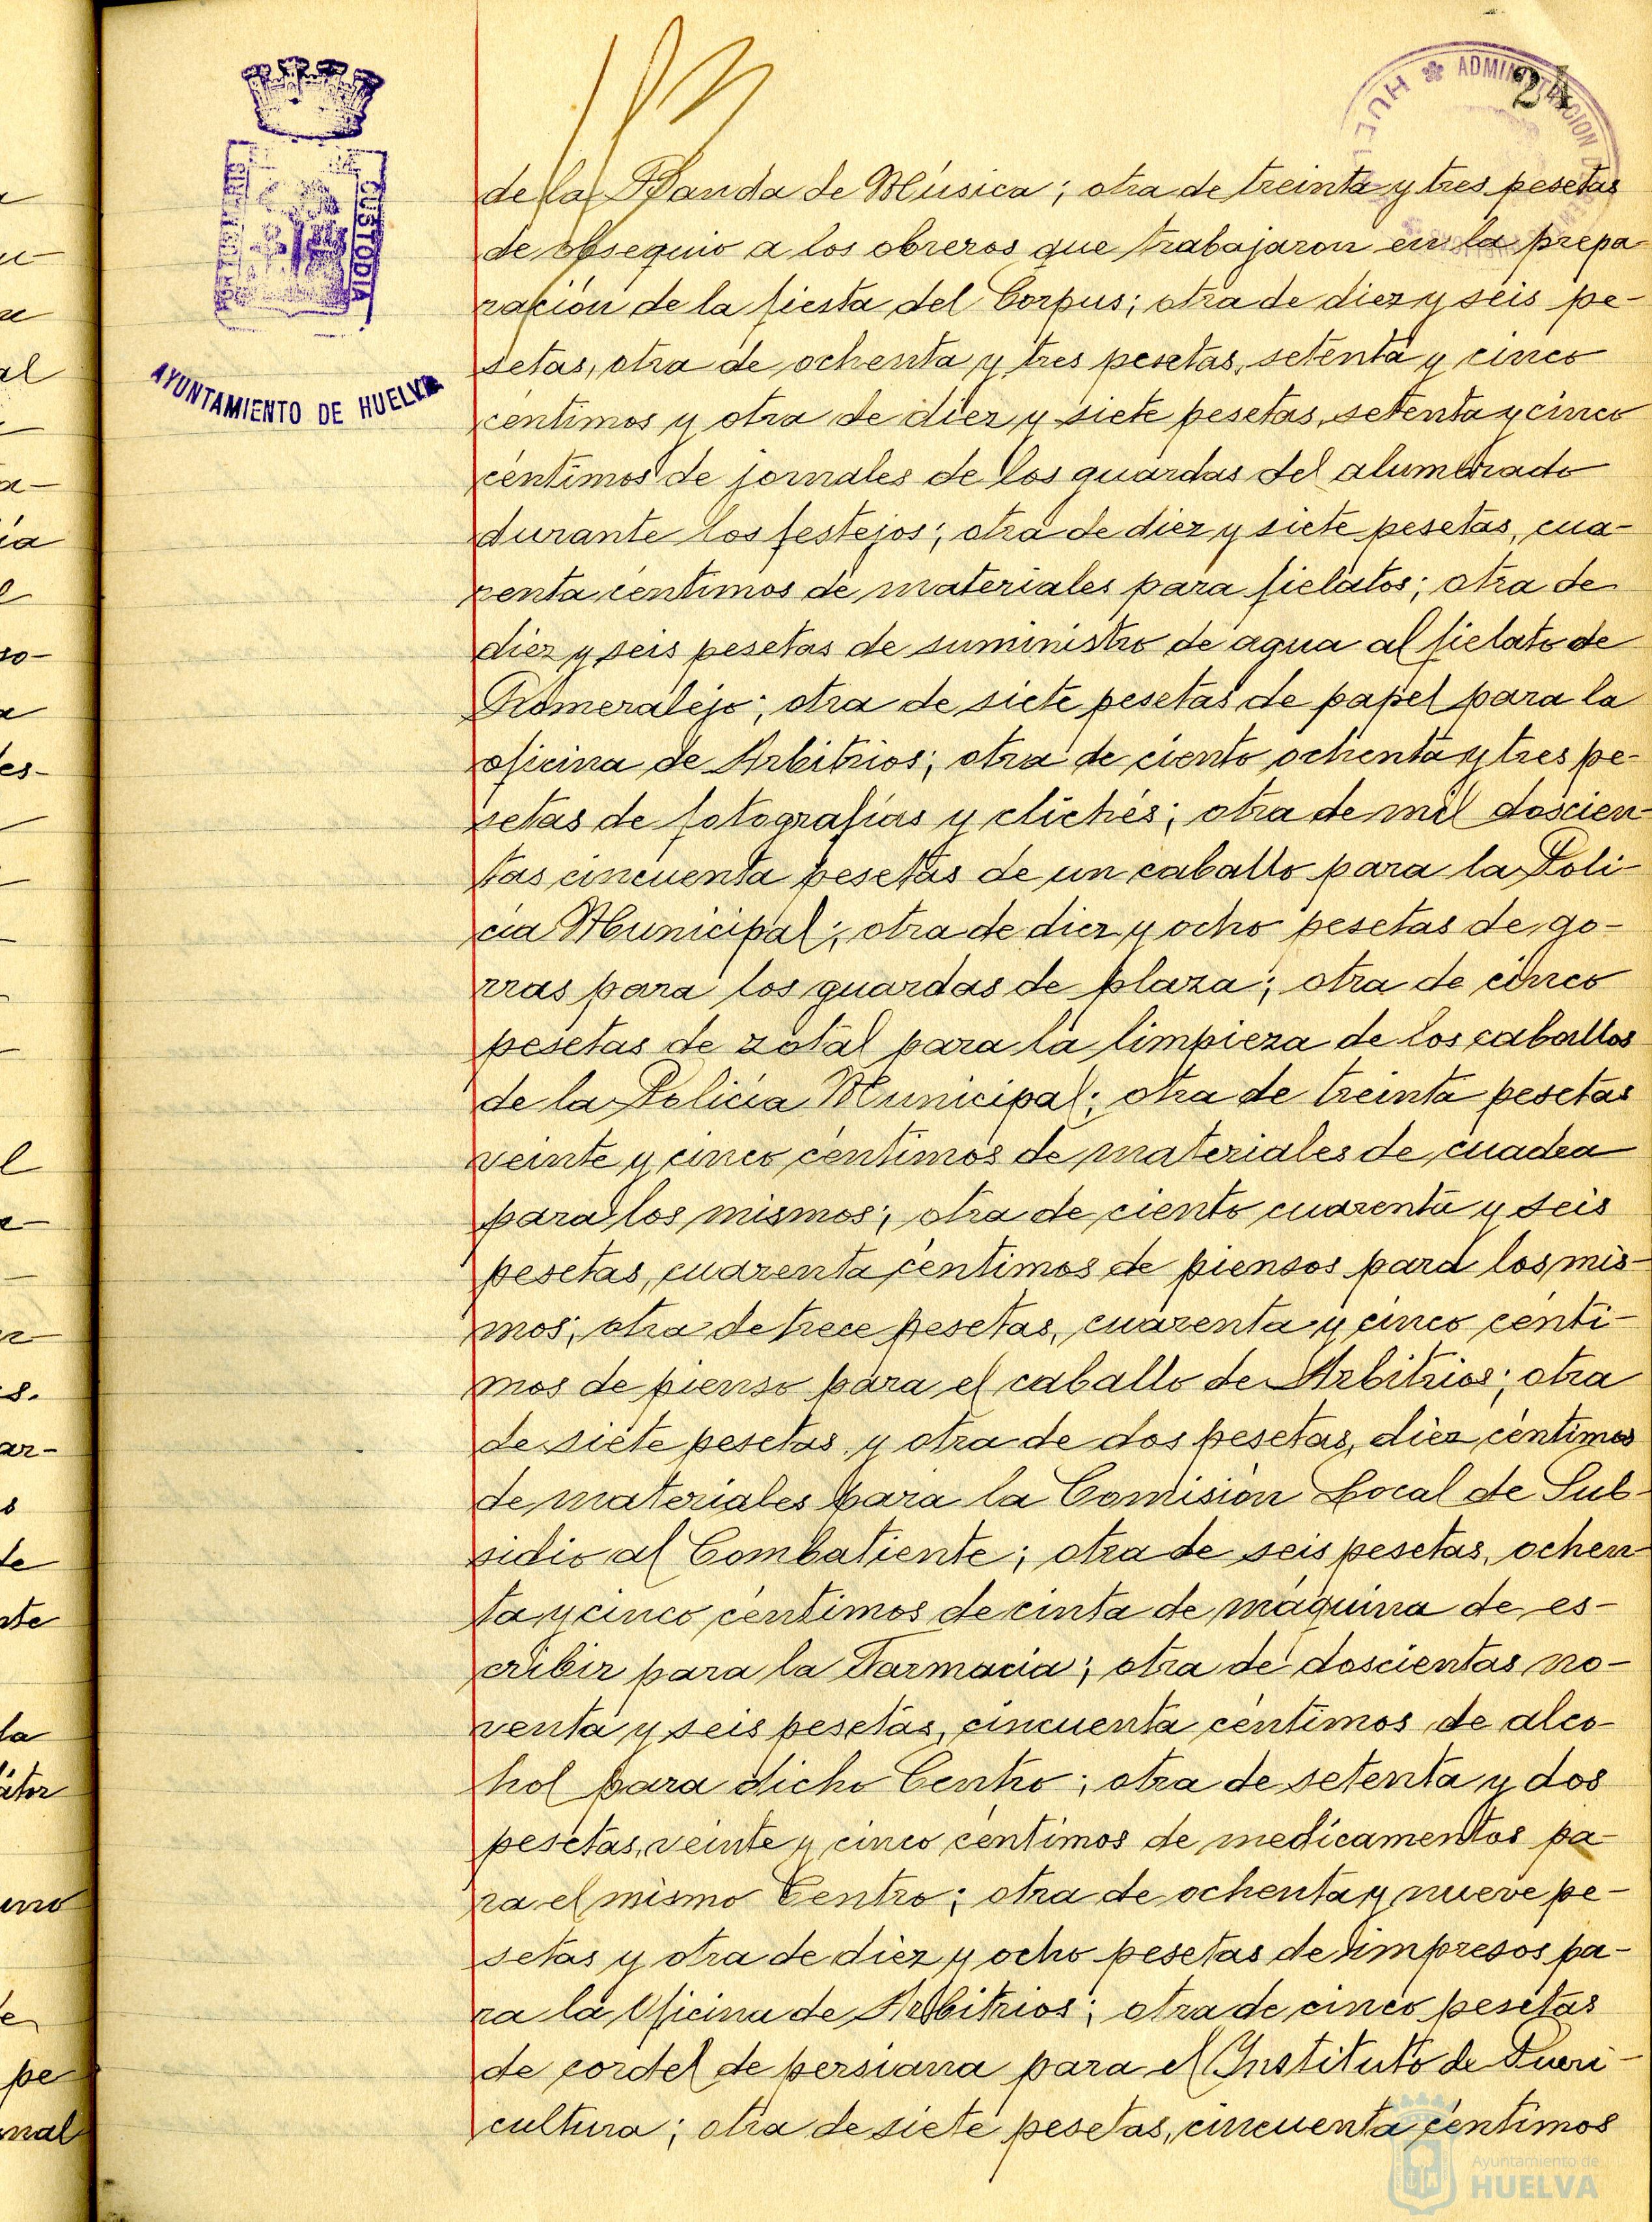 24
ADMINISTRACION
HUELVA
PORTUS MARIS
CUSTODIA
AYUNTAMIENTO DE HUELVA
de la Banda de Música; otra de treinta y tres pesetas
de obsequio a los obreros que trabajaron en la prepa-
ración de la fiesta del Corpus; otra de diez y seis pe-
setas, otra de ochenta y tres pesetas, setenta y cinco
céntimos y otra de diez y siete pesetas, setenta y cinco
céntimos de jornales de los guardas del alumbrado
durante los festejos; otra de diez y siete pesetas, cua-
renta céntimos de materiales para fielatos; otra de
diez y seis pesetas de suministro de agua al fielato de
Romeralejo; otra de siete pesetas de papel para la
oficina de Arbitrios; otra de ciento ochenta y tres pe-
setas de fotografías y clichés; otra de mil doscien-
tas cincuenta pesetas de un caballo para la Poli-
cía Municipal; otra de diez y ocho pesetas de go-
rras para los guardas de plaza; otra de cinco
pesetas de zotal para la limpieza de los caballos
de la Policía Municipal; otra de treinta pesetas
veinte y cinco céntimos de materiales de cuadra
para los mismos; otra de ciento cuarenta y seis
pesetas, cuarenta céntimos de piensos para los mis-
mos; otra de trece pesetas, cuarenta y cinco cénti-
mos de pienso para el caballo de Arbitrios; otra
de siete pesetas y otra de dos pesetas, diez céntimos
de materiales para la Comisión Local de Sub-
sidio al Combatiente; otra de seis pesetas, ochen-
ta y cinco céntimos de cinta de máquina de es-
cribir para la Farmacia; otra de doscientas no-
venta y seis pesetas, cincuenta céntimos de alco-
hol para dicho Centro; otra de setenta y dos
pesetas, veinte y cinco céntimos de medicamentos pa-
ra el mismo Centro; otra de ochenta y nueve pe-
setas y otra de diez y ocho pesetas de impresos pa-
ra la Oficina de Arbitrios; otra de cinco pesetas
de cordel de persiana para el Instituto de Pueri-
cultura; otra de siete pesetas, cincuenta céntimos
Ayuntamiento de
HUELVA